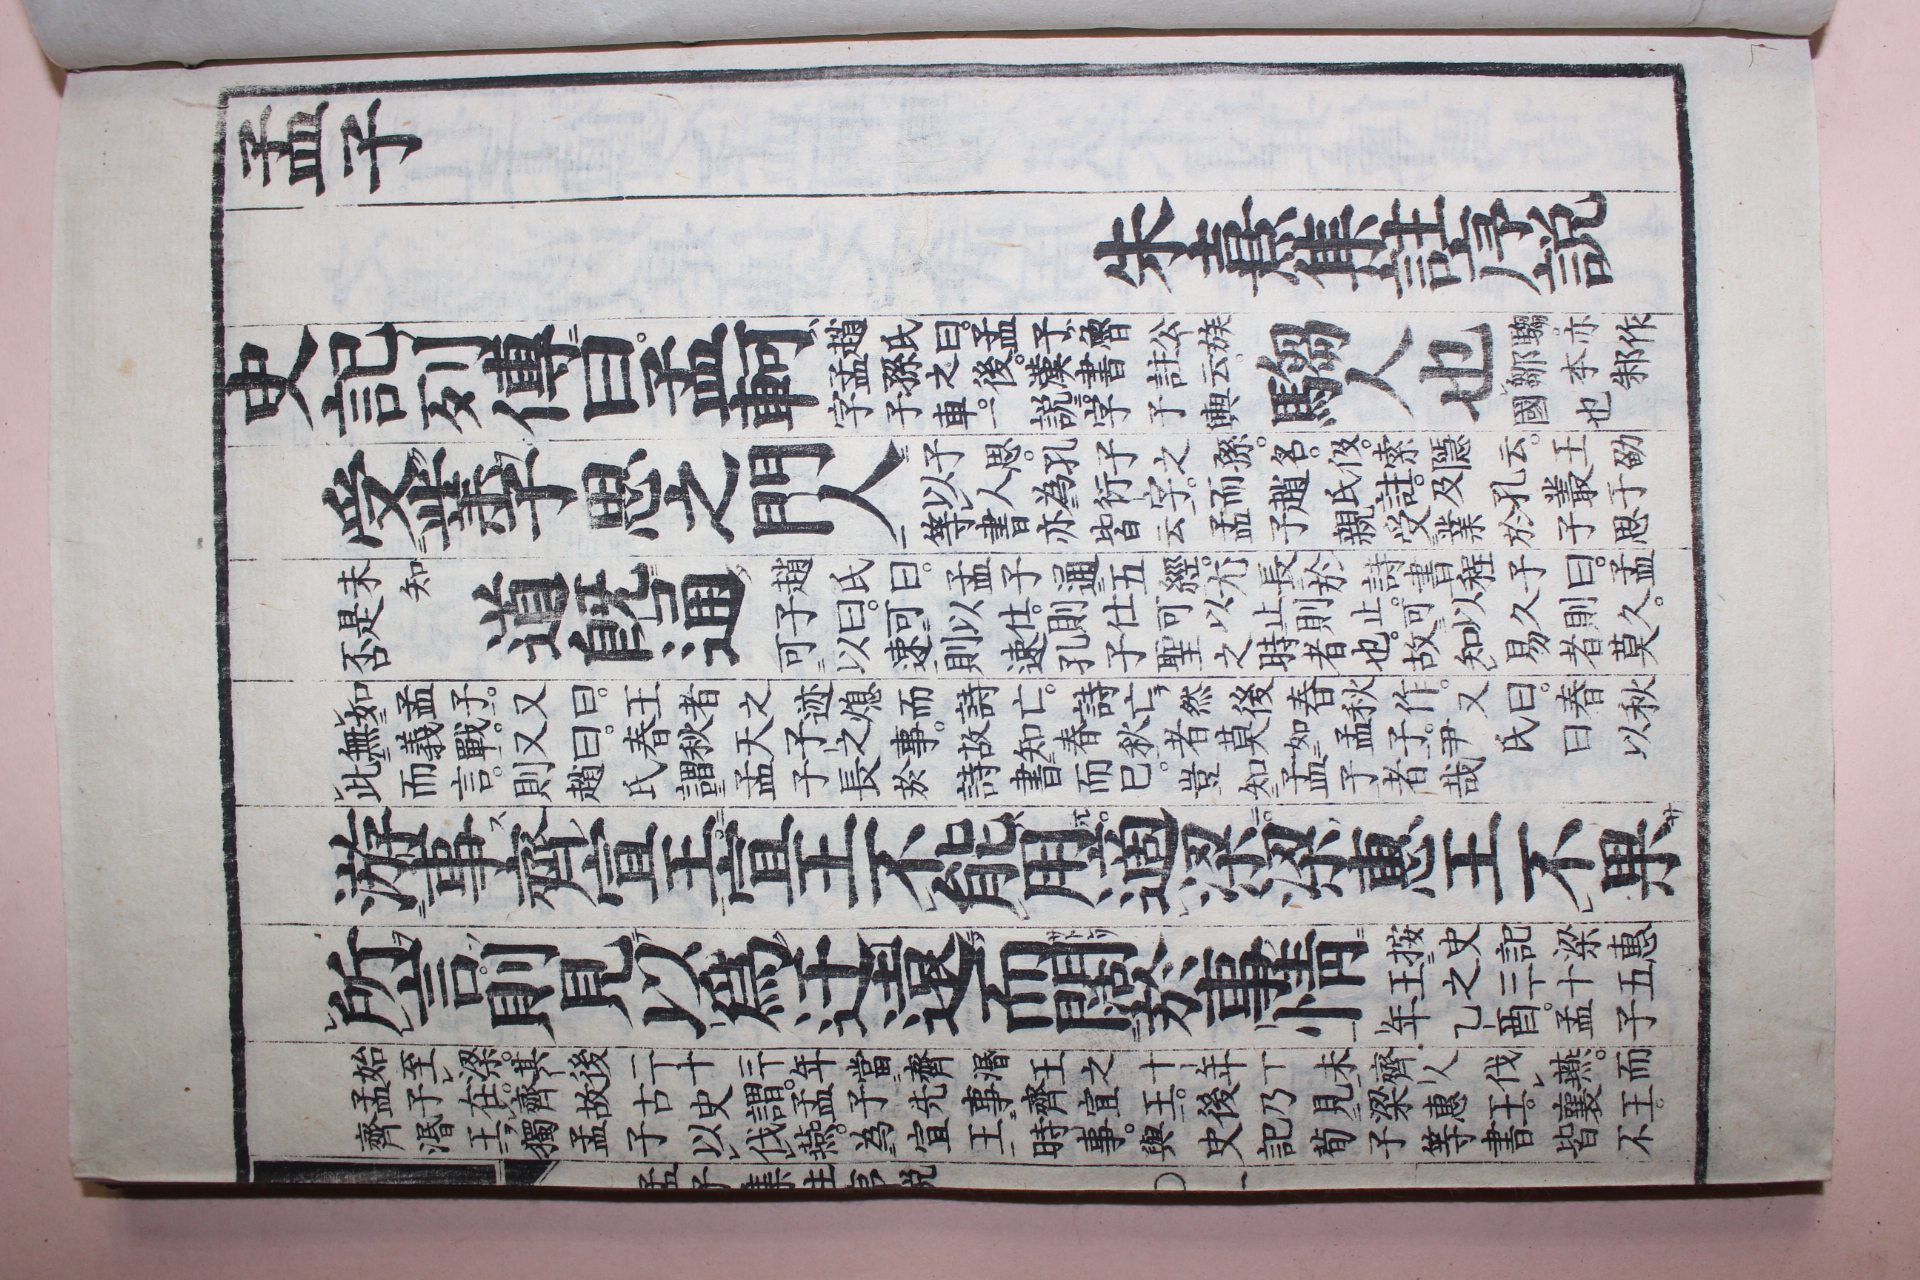 孟子
朱熹集註序説
史記列傳曰。孟軻
趙氏曰。孟子魯公族
孟孫之後。漢書註云。
字子車。一説字子輿
騶人也
騶。亦作
鄒本邾
國也
受業子思之門人
子思。孔子之孫。名伋。索隱云。王劭
以人為衍字。而趙氏註。及孔叢子
等書亦皆云孟子親受業於子思
未知
是
否
道既通
趙氏曰。孟子通五經。尤長於詩書程子曰。孟
子曰。可以仕。則仕可以止則止。可以久則久。
可以速則速孔子聖之時者也。故知易者莫
如孟子。又曰。王者之迹熄而詩亡。詩亡。然後春秋作。又曰。春秋
無義戰。又曰。春秋天子之事。故知春秋者莫如孟子。尹氏曰以
此而言。則趙氏謂孟子長於詩書而已。豈知孟子者哉
游事齊宣王。宣王不能用。適梁。梁惠王不果
所言。則見以爲迂遠而闊於事情
按史記梁惠
王之三十五
年乙酉。孟子
始至梁。其後二十三年當齊湣王之十年丁未齊人伐燕。而
孟子在齊故古史謂。孟子先事齊宣王。後乃見梁惠王。襄王。
齊湣王。獨孟子以伐燕。為宣王時事。與史記荀子等書皆不
孟子集註序説 一